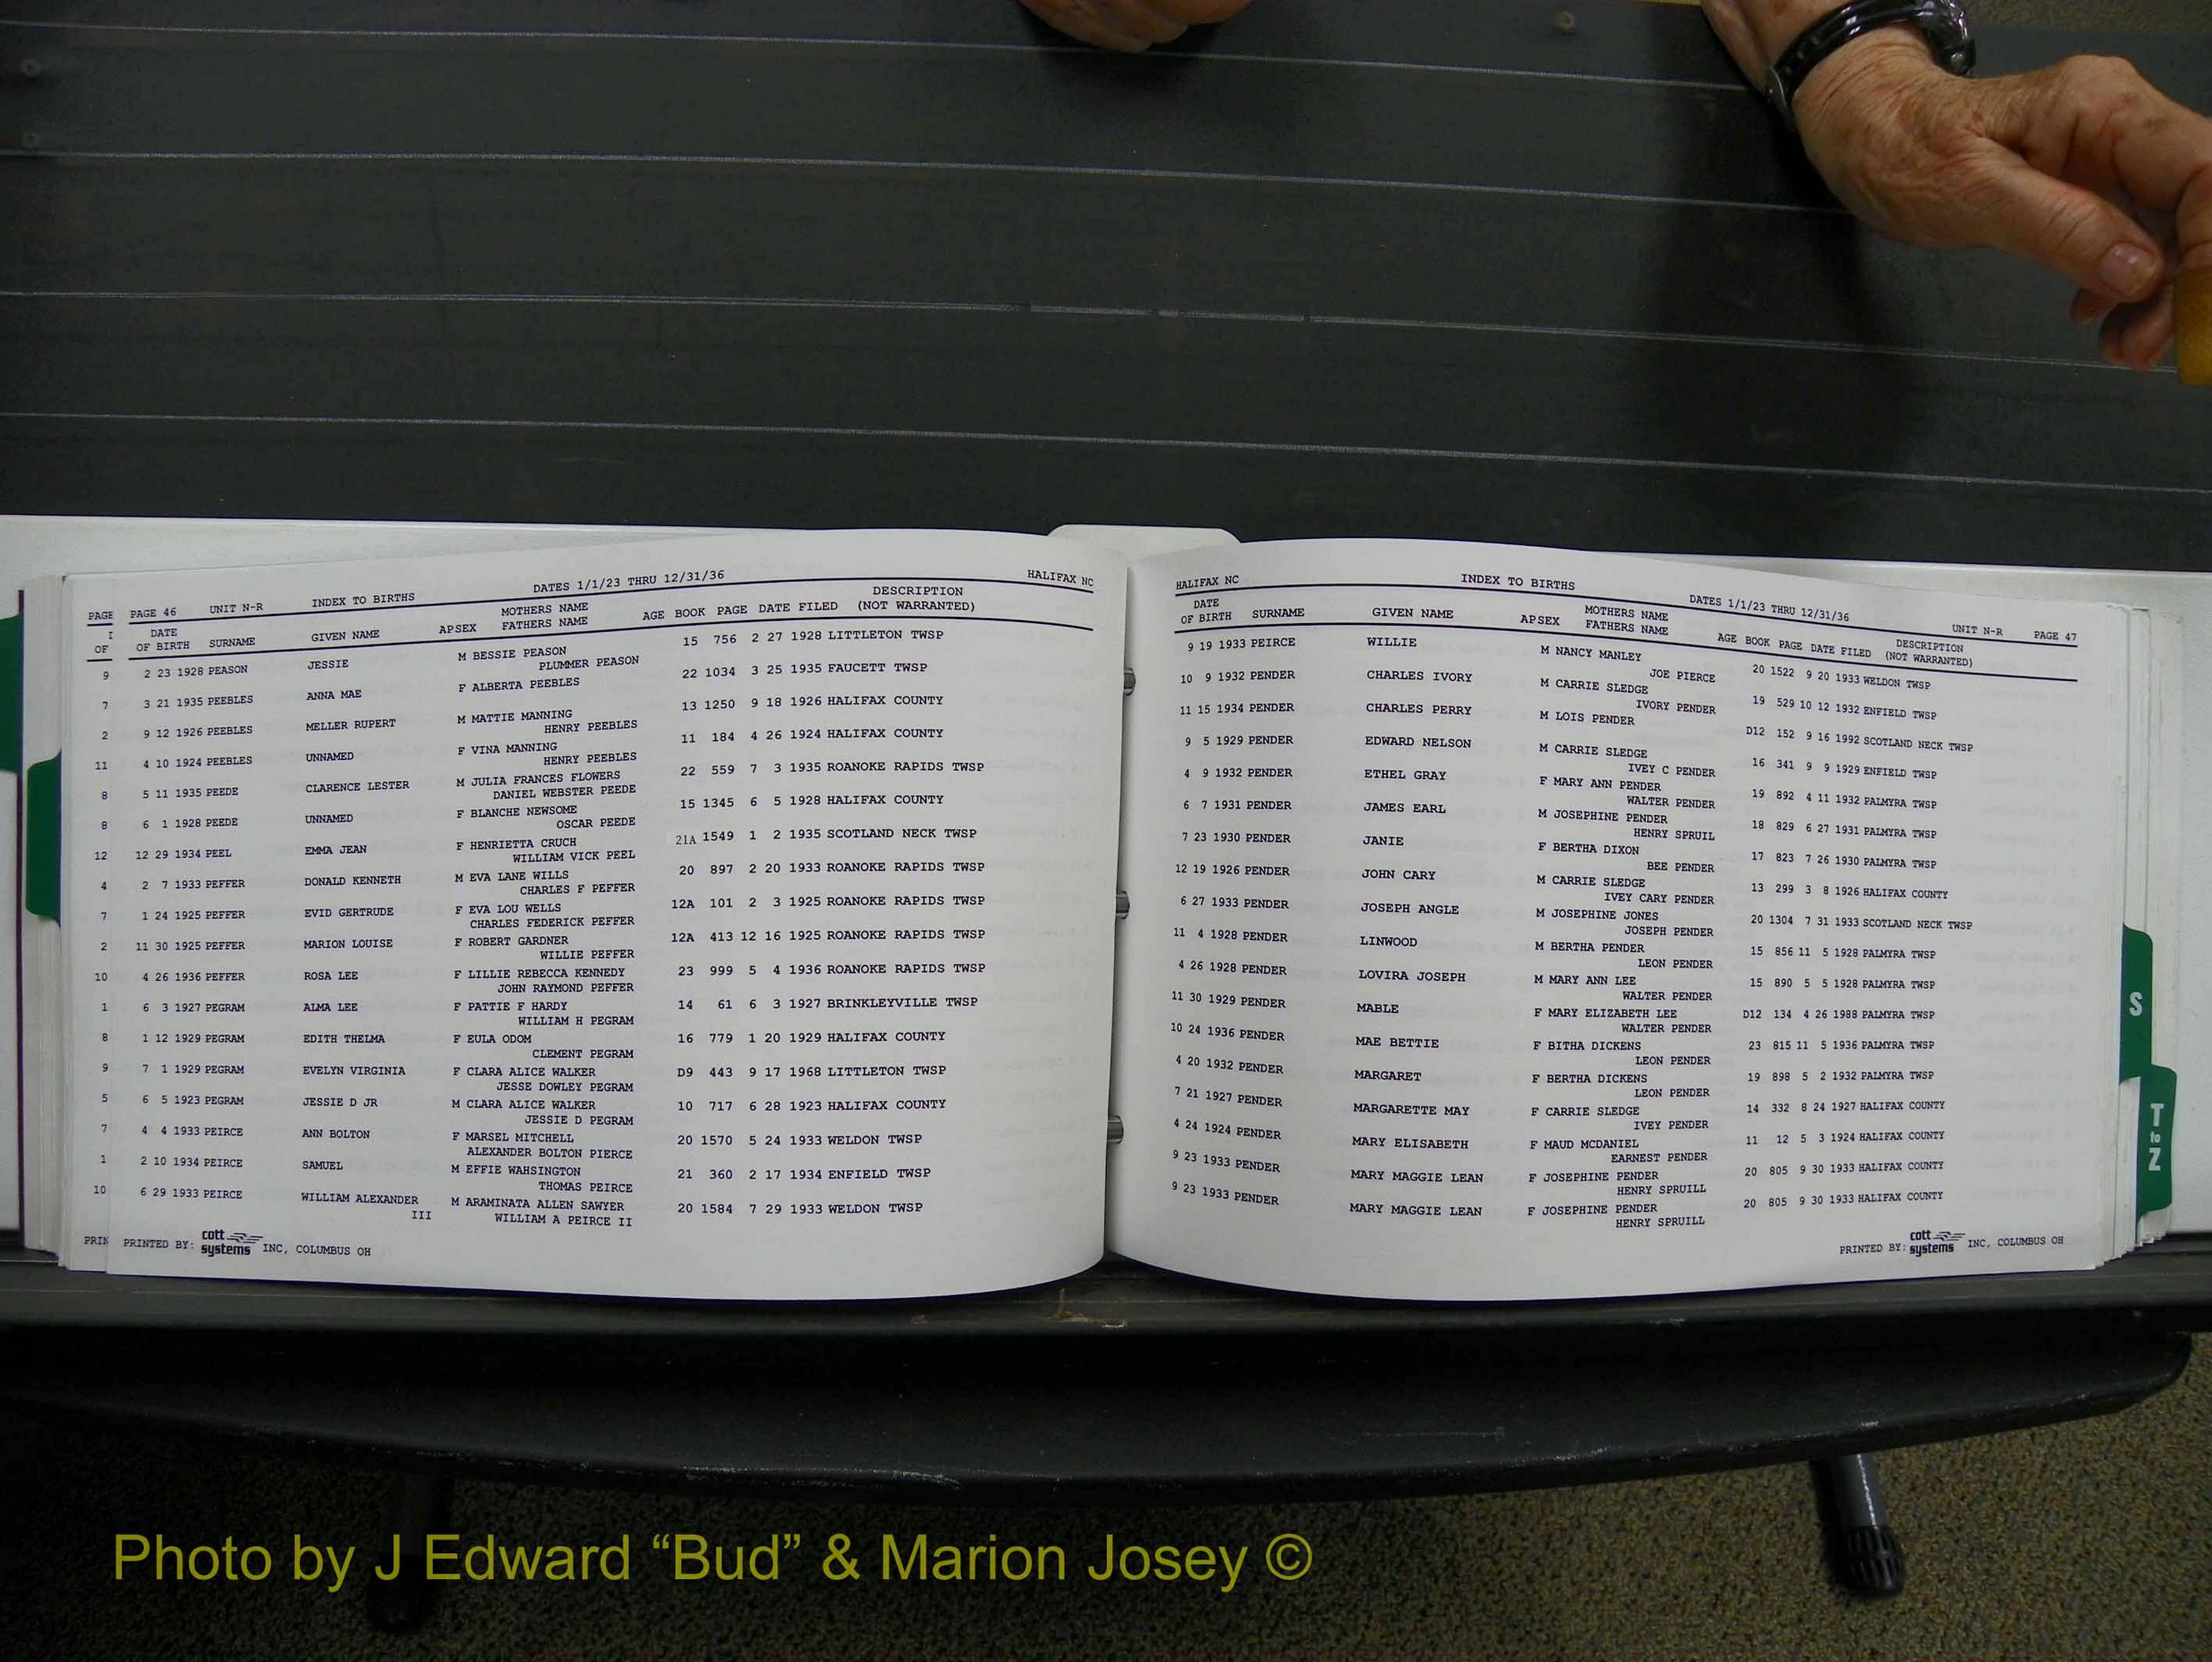 PAGE
I
OF
9
7
2
11
8
8
12
4
7
2
10
1
8
9
5
7
1
10
PRIN
PAGE 46 UNIT N-R INDEX TO BIRTHS DATES 1/1/23 THRU 12/31/36 HALIFAX NC
DATE MOTHERS NAME DESCRIPTION
OF BIRTH SURNAME GIVEN NAME APSEX FATHERS NAME AGE BOOK PAGE DATE FILED (NOT WARRANTED)
2 23 1928 PEASON JESSIE M BESSIE PEASON 15 756 2 27 1928 LITTLETON TWSP
PLUMMER PEASON
3 21 1935 PEEBLES ANNA MAE F ALBERTA PEEBLES 22 1034 3 25 1935 FAUCETT TWSP
9 12 1926 PEEBLES MELLER RUPERT M MATTIE MANNING 13 1250 9 18 1926 HALIFAX COUNTY
HENRY PEEBLES
4 10 1924 PEEBLES UNNAMED F VINA MANNING 11 184 4 26 1924 HALIFAX COUNTY
HENRY PEEBLES
5 11 1935 PEEDE CLARENCE LESTER M JULIA FRANCES FLOWERS 22 559 7 3 1935 ROANOKE RAPIDS TWSP
DANIEL WEBSTER PEEDE
6 1 1928 PEEDE UNNAMED F BLANCHE NEWSOME 15 1345 6 5 1928 HALIFAX COUNTY
OSCAR PEEDE
12 29 1934 PEEL EMMA JEAN F HENRIETTA CRUCH 21A 1549 1 2 1935 SCOTLAND NECK TWSP
WILLIAM VICK PEEL
2 7 1933 PEFFER DONALD KENNETH M EVA LANE WILLS 20 897 2 20 1933 ROANOKE RAPIDS TWSP
CHARLES F PEFFER
1 24 1925 PEFFER EVID GERTRUDE F EVA LOU WELLS 12A 101 2 3 1925 ROANOKE RAPIDS TWSP
CHARLES FEDERICK PEFFER
11 30 1925 PEFFER MARION LOUISE F ROBERT GARDNER 12A 413 12 16 1925 ROANOKE RAPIDS TWSP
WILLIE PEFFER
4 26 1936 PEFFER ROSA LEE F LILLIE REBECCA KENNEDY 23 999 5 4 1936 ROANOKE RAPIDS TWSP
JOHN RAYMOND PEFFER
6 3 1927 PEGRAM ALMA LEE F PATTIE F HARDY 14 61 6 3 1927 BRINKLEYVILLE TWSP
WILLIAM H PEGRAM
1 12 1929 PEGRAM EDITH THELMA F EULA ODOM 16 779 1 20 1929 HALIFAX COUNTY
CLEMENT PEGRAM
7 1 1929 PEGRAM EVELYN VIRGINIA F CLARA ALICE WALKER D9 443 9 17 1968 LITTLETON TWSP
JESSE DOWLEY PEGRAM
6 5 1923 PEGRAM JESSIE D JR M CLARA ALICE WALKER 10 717 6 28 1923 HALIFAX COUNTY
JESSIE D PEGRAM
4 4 1933 PEIRCE ANN BOLTON F MARSEL MITCHELL 20 1570 5 24 1933 WELDON TWSP
ALEXANDER BOLTON PIERCE
2 10 1934 PEIRCE SAMUEL M EFFIE WAHSINGTON 21 360 2 17 1934 ENFIELD TWSP
THOMAS PEIRCE
6 29 1933 PEIRCE WILLIAM ALEXANDER M ARAMINATA ALLEN SAWYER 20 1584 7 29 1933 WELDON TWSP
III WILLIAM A PEIRCE II
PRINTED BY: cott systems INC, COLUMBUS OH
HALIFAX NC INDEX TO BIRTHS DATES 1/1/23 THRU 12/31/36 UNIT N-R PAGE 47
DATE MOTHERS NAME DESCRIPTION
OF BIRTH SURNAME GIVEN NAME APSEX FATHERS NAME AGE BOOK PAGE DATE FILED (NOT WARRANTED)
9 19 1933 PEIRCE WILLIE M NANCY MANLEY 20 1522 9 20 1933 WELDON TWSP
JOE PIERCE
10 9 1932 PENDER CHARLES IVORY M CARRIE SLEDGE 19 529 10 12 1932 ENFIELD TWSP
IVORY PENDER
11 15 1934 PENDER CHARLES PERRY M LOIS PENDER D12 152 9 16 1992 SCOTLAND NECK TWSP
9 5 1929 PENDER EDWARD NELSON M CARRIE SLEDGE 16 341 9 9 1929 ENFIELD TWSP
IVEY C PENDER
4 9 1932 PENDER ETHEL GRAY F MARY ANN PENDER 19 892 4 11 1932 PALMYRA TWSP
WALTER PENDER
6 7 1931 PENDER JAMES EARL M JOSEPHINE PENDER 18 829 6 27 1931 PALMYRA TWSP
HENRY SPRUIL
7 23 1930 PENDER JANIE F BERTHA DIXON 17 823 7 26 1930 PALMYRA TWSP
BEE PENDER
12 19 1926 PENDER JOHN CARY M CARRIE SLEDGE 13 299 3 8 1926 HALIFAX COUNTY
IVEY CARY PENDER
6 27 1933 PENDER JOSEPH ANGLE M JOSEPHINE JONES 20 1304 7 31 1933 SCOTLAND NECK TWSP
JOSEPH PENDER
11 4 1928 PENDER LINWOOD M BERTHA PENDER 15 856 11 5 1928 PALMYRA TWSP
LEON PENDER
4 26 1928 PENDER LOVIRA JOSEPH M MARY ANN LEE 15 890 5 5 1928 PALMYRA TWSP
WALTER PENDER
11 30 1929 PENDER MABLE F MARY ELIZABETH LEE D12 134 4 26 1988 PALMYRA TWSP
WALTER PENDER
10 24 1936 PENDER MAE BETTIE F BITHA DICKENS 23 815 11 5 1936 PALMYRA TWSP
LEON PENDER
4 20 1932 PENDER MARGARET F BERTHA DICKENS 19 898 5 2 1932 PALMYRA TWSP
LEON PENDER
7 21 1927 PENDER MARGARETTE MAY F CARRIE SLEDGE 14 332 8 24 1927 HALIFAX COUNTY
IVEY PENDER
4 24 1924 PENDER MARY ELISABETH F MAUD MCDANIEL 11 12 5 3 1924 HALIFAX COUNTY
EARNEST PENDER
9 23 1933 PENDER MARY MAGGIE LEAN F JOSEPHINE PENDER 20 805 9 30 1933 HALIFAX COUNTY
HENRY SPRUILL
9 23 1933 PENDER MARY MAGGIE LEAN F JOSEPHINE PENDER 20 805 9 30 1933 HALIFAX COUNTY
HENRY SPRUILL
PRINTED BY: cott systems INC, COLUMBUS OH
S
T
to
Z
Photo by J Edward “Bud” & Marion Josey ©